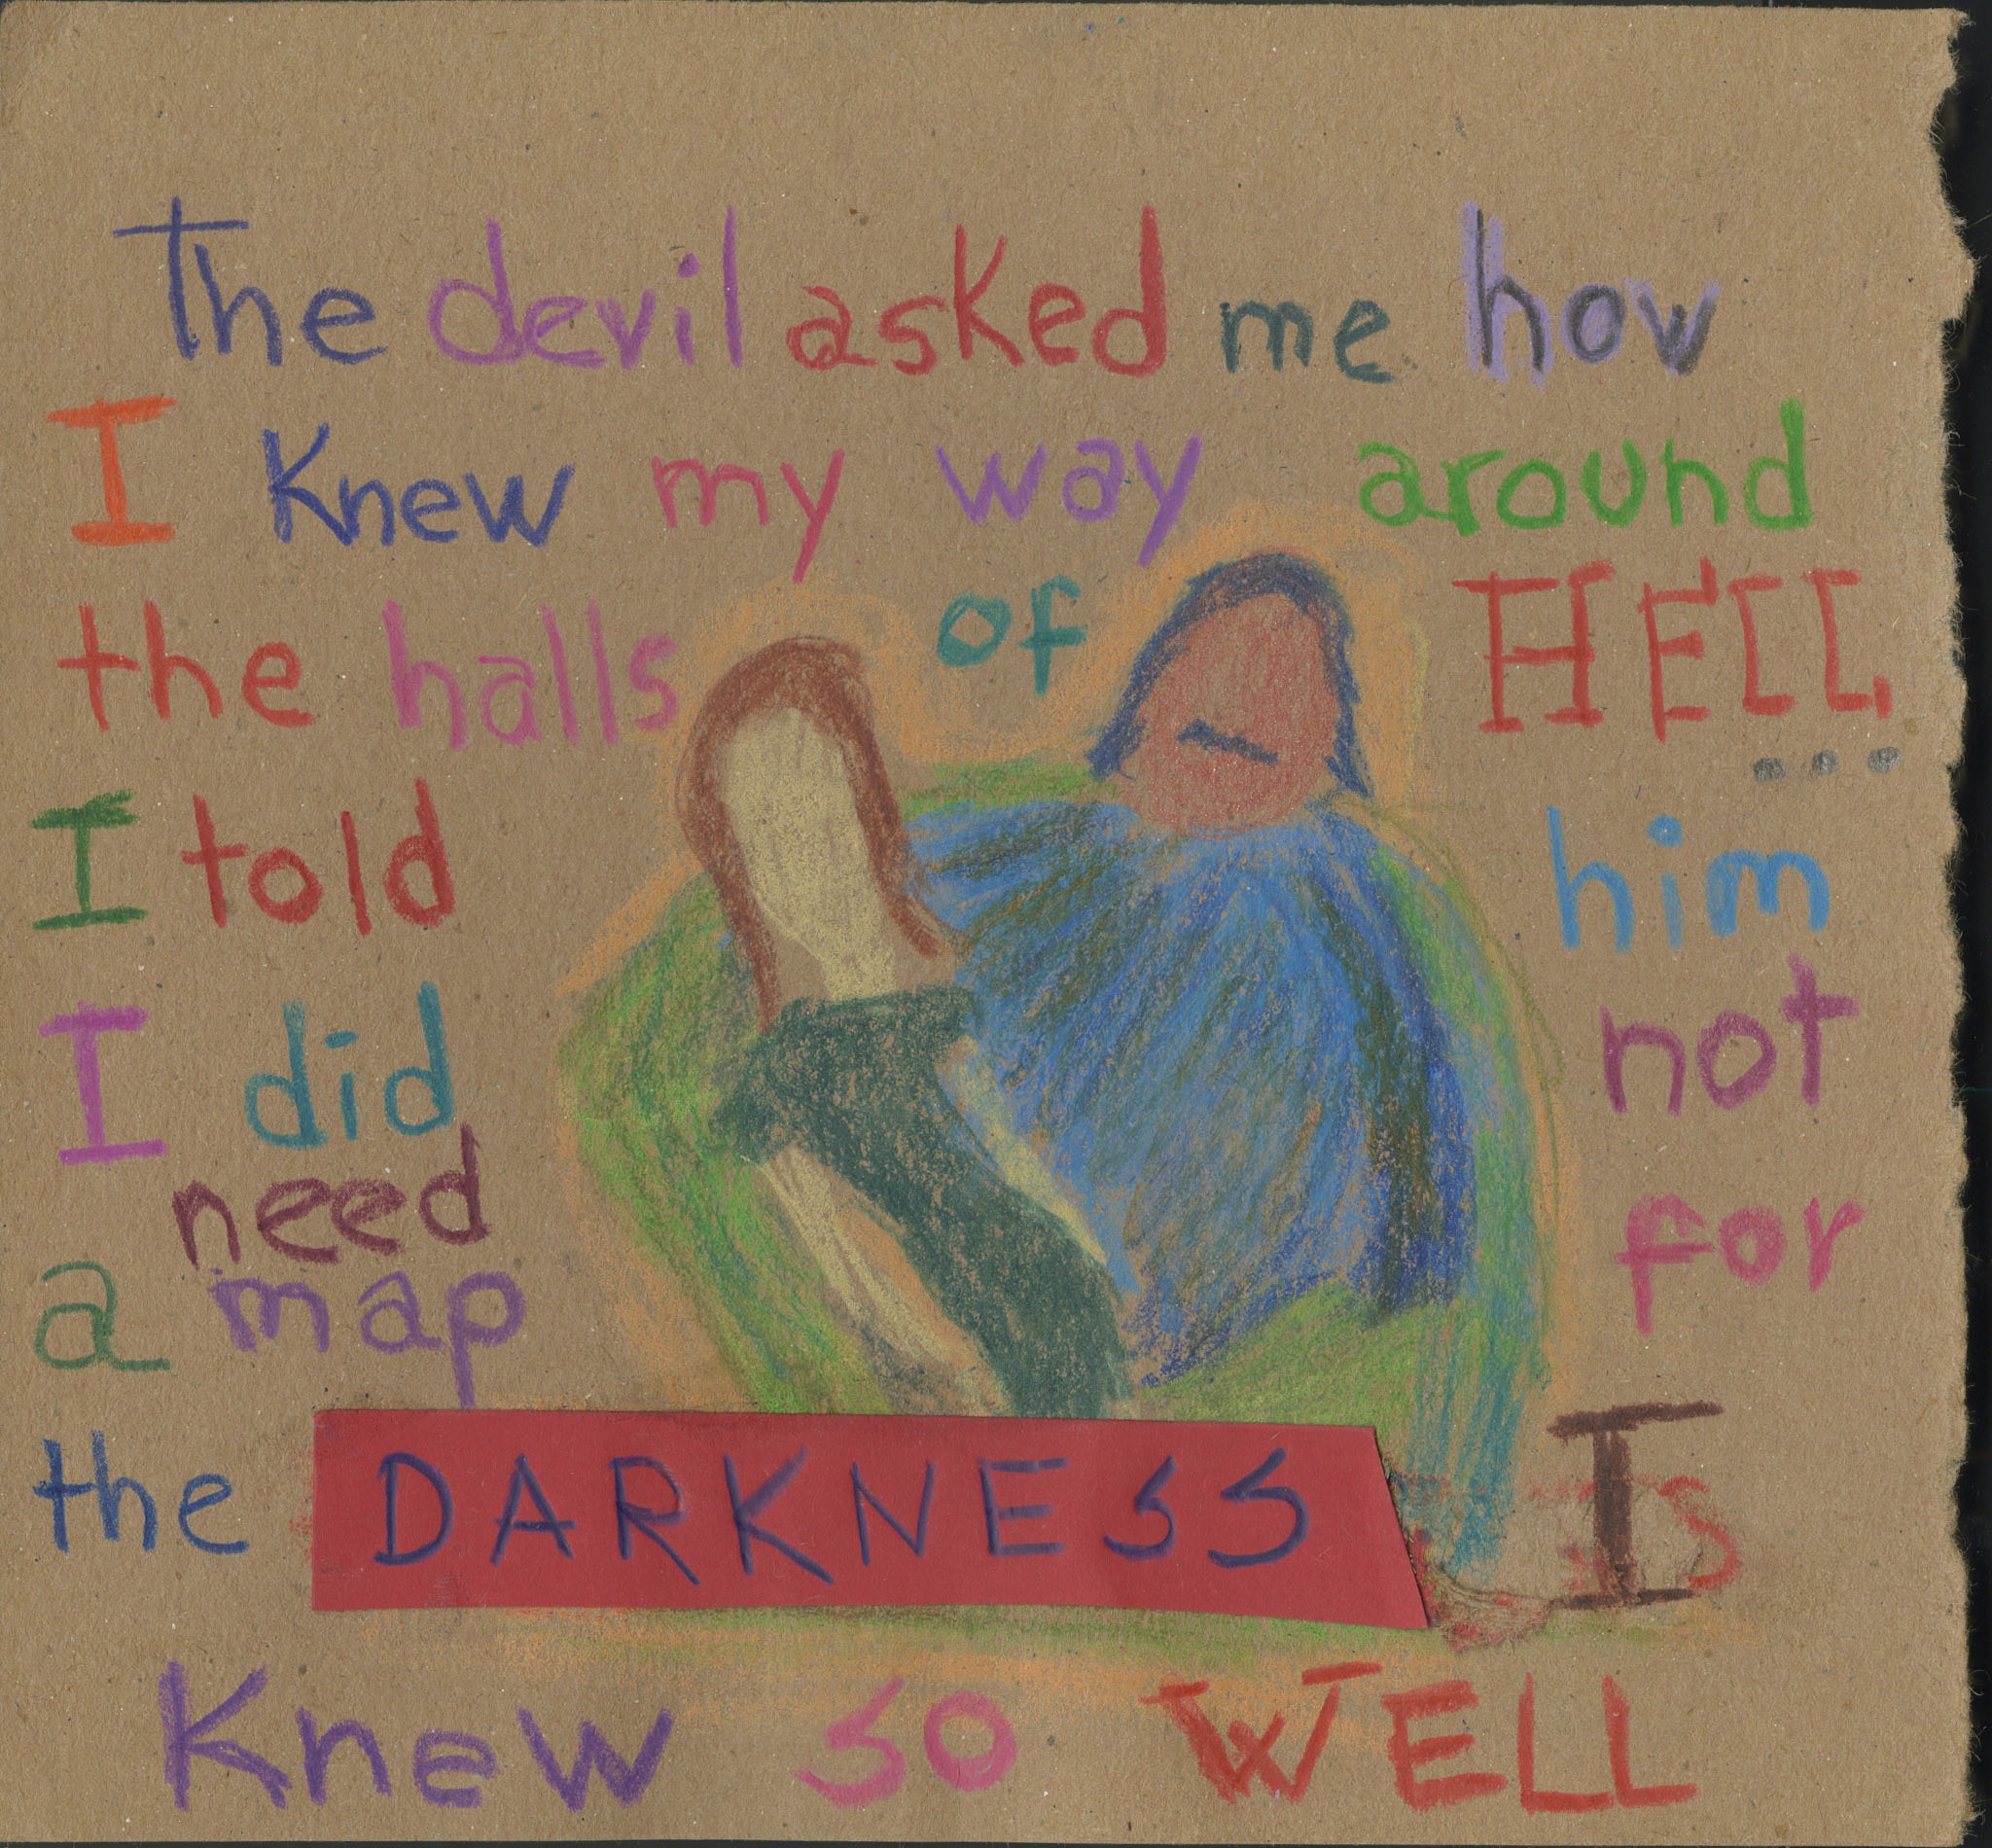 The devil asked me how
I Knew my way around
the halls of HELL
...
I told him
I did not
need for
a map
the DARKNESS I
Knew so WELL